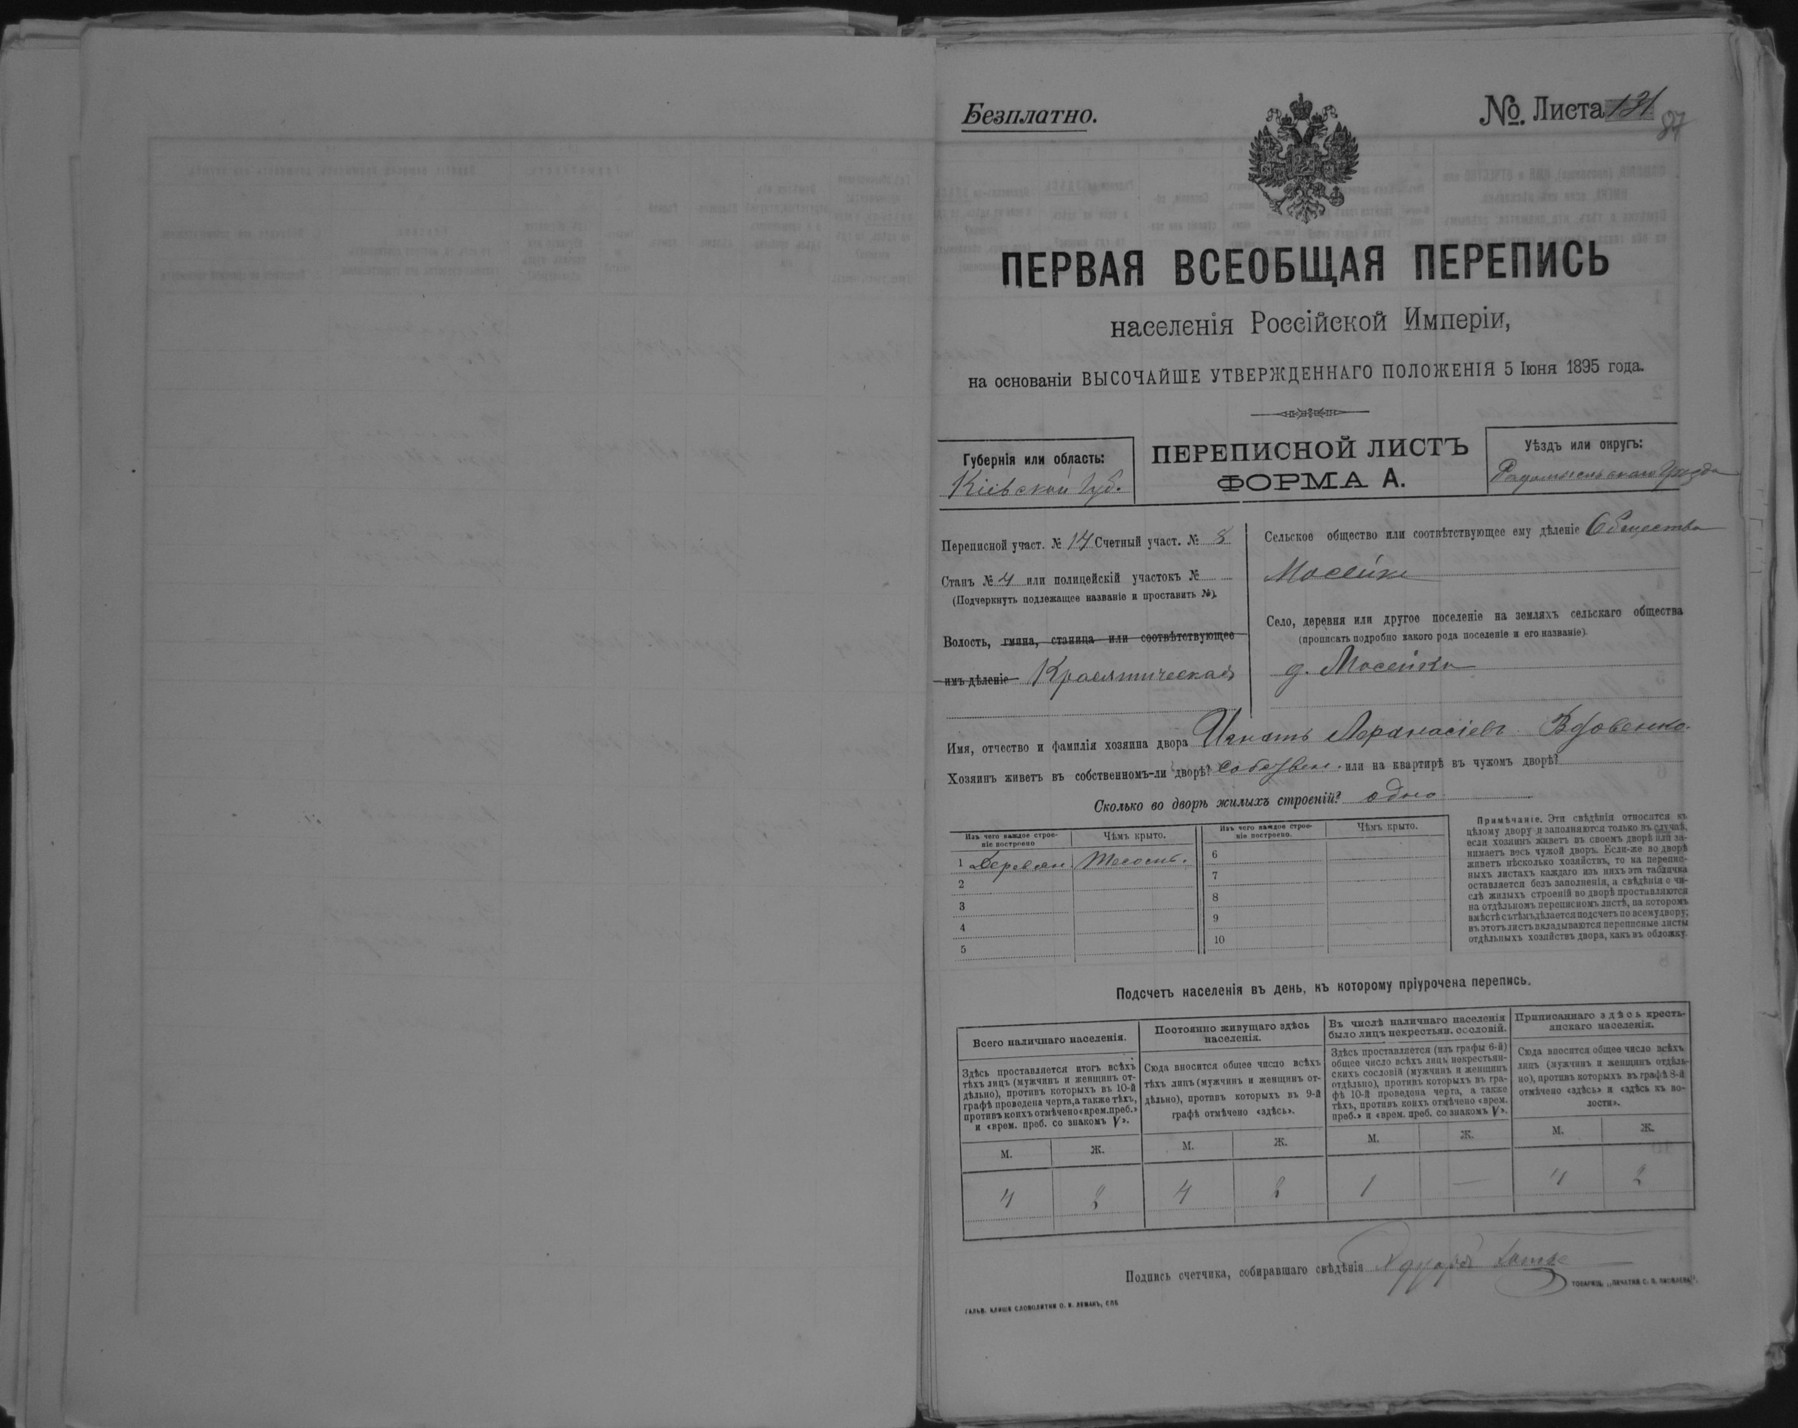 Безплатно.
№. Листа 131
87
ПЕРВАЯ ВСЕОБЩАЯ ПЕРЕПИСЬ
населенія Россійской Имперіи,
на основаніи ВЫСОЧАЙШЕ УТВЕРЖДЕННАГО ПОЛОЖЕНІЯ 5 Іюня 1895 года.
Губернія или область:
Кіевской Губ.
ПЕРЕПИСНОЙ ЛИСТЪ
ФОРМА А.
Уѣздъ или округъ:
Радомысльскаго Уѣзда
Переписной участ. № 14 Счетный участ. №
Станъ № 4 или полицейскій участокъ №
(Подчеркнуть подлежащее названіе и проставить №).
Волость, гмина, станица или соотвѣтствующее
имъ дѣленіе
Сельское общество или соотвѣтствующее ему дѣленіе Общества
Мосейки
Село, деревня или другое поселеніе на земляхъ сельскаго общества
(прописать подробно какого рода поселеніе и его названіе)
д. Мосейки
Имя, отчество и фамилія хозяина двора Игнатъ Афанасіевъ Вдовенко.
Хозяинъ живетъ въ собственномъ-ли дворѣ? собствен. или на квартирѣ въ чужомъ дворѣ?
Сколько во дворѣ жилыхъ строеній? одно
Изъ чего каждое строеніе построено
Чѣмъ крыто.
Изъ чего каждое строеніе построено.
Чѣмъ крыто.
1 Деревян
2
3
4
5
6
7
8
9
10
Примѣчаніе. Эти свѣдѣнія относятся къ
цѣлому двору и заполняются только въ случаѣ,
если хозяинъ живетъ въ своемъ дворѣ или за-
нимаетъ весь чужой дворъ. Если-же во дворѣ
живетъ нѣсколько хозяйствъ, то на перепис-
ныхъ листахъ каждаго изъ нихъ эта табличка
оставляется безъ заполненія, а свѣдѣнія о чи-
слѣ жилыхъ строеній во дворѣ проставляются
на отдѣльномъ переписномъ листѣ, на которомъ
вмѣстѣ съ тѣмъ дѣлается подсчетъ по всему двору;
въ этотъ листъ вкладываются переписные листы
отдѣльныхъ хозяйствъ двора, какъ въ обложку.
Подсчетъ населенія въ день, къ которому пріурочена перепись.
Всего наличнаго населенія.
Здѣсь проставляется итогъ всѣхъ
тѣхъ лицъ (мужчинъ и женщинъ от-
дѣльно), противъ которыхъ въ 10-й
графѣ проведена черта, а также тѣхъ,
противъ коихъ отмѣчено «врем. преб.»
и «врем. преб. со знакомъ V».
Постоянно живущаго здѣсь
населенія.
Сюда вносится общее число всѣхъ
тѣхъ лицъ (мужчинъ и женщинъ от-
дѣльно), противъ которыхъ въ 9-й
графѣ отмѣчено «здѣсь».
Въ числѣ наличнаго населенія
было лицъ некрестьян. сословій.
Здѣсь проставляется (изъ графы 6-й)
общее число всѣхъ лицъ некрестьян-
скихъ сословій (мужчинъ и женщинъ
отдѣльно), противъ которыхъ въ гра-
фѣ 10-й проведена черта, а также
тѣхъ, противъ коихъ отмѣчено «врем.
преб.» и «врем. преб. со знакомъ V».
Приписаннаго здѣсь кресть-
янскаго населенія.
Сюда вносится общее число всѣхъ
лицъ (мужчинъ и женщинъ отдѣль-
но), противъ которыхъ въ графѣ 8-й
отмѣчено «здѣсь» и «здѣсь къ во-
лости».
М. Ж. М. Ж. М. Ж. М. Ж.
4 2 4 2 1 — 4 2
Подпись счетчика, собиравшаго свѣдѣнія